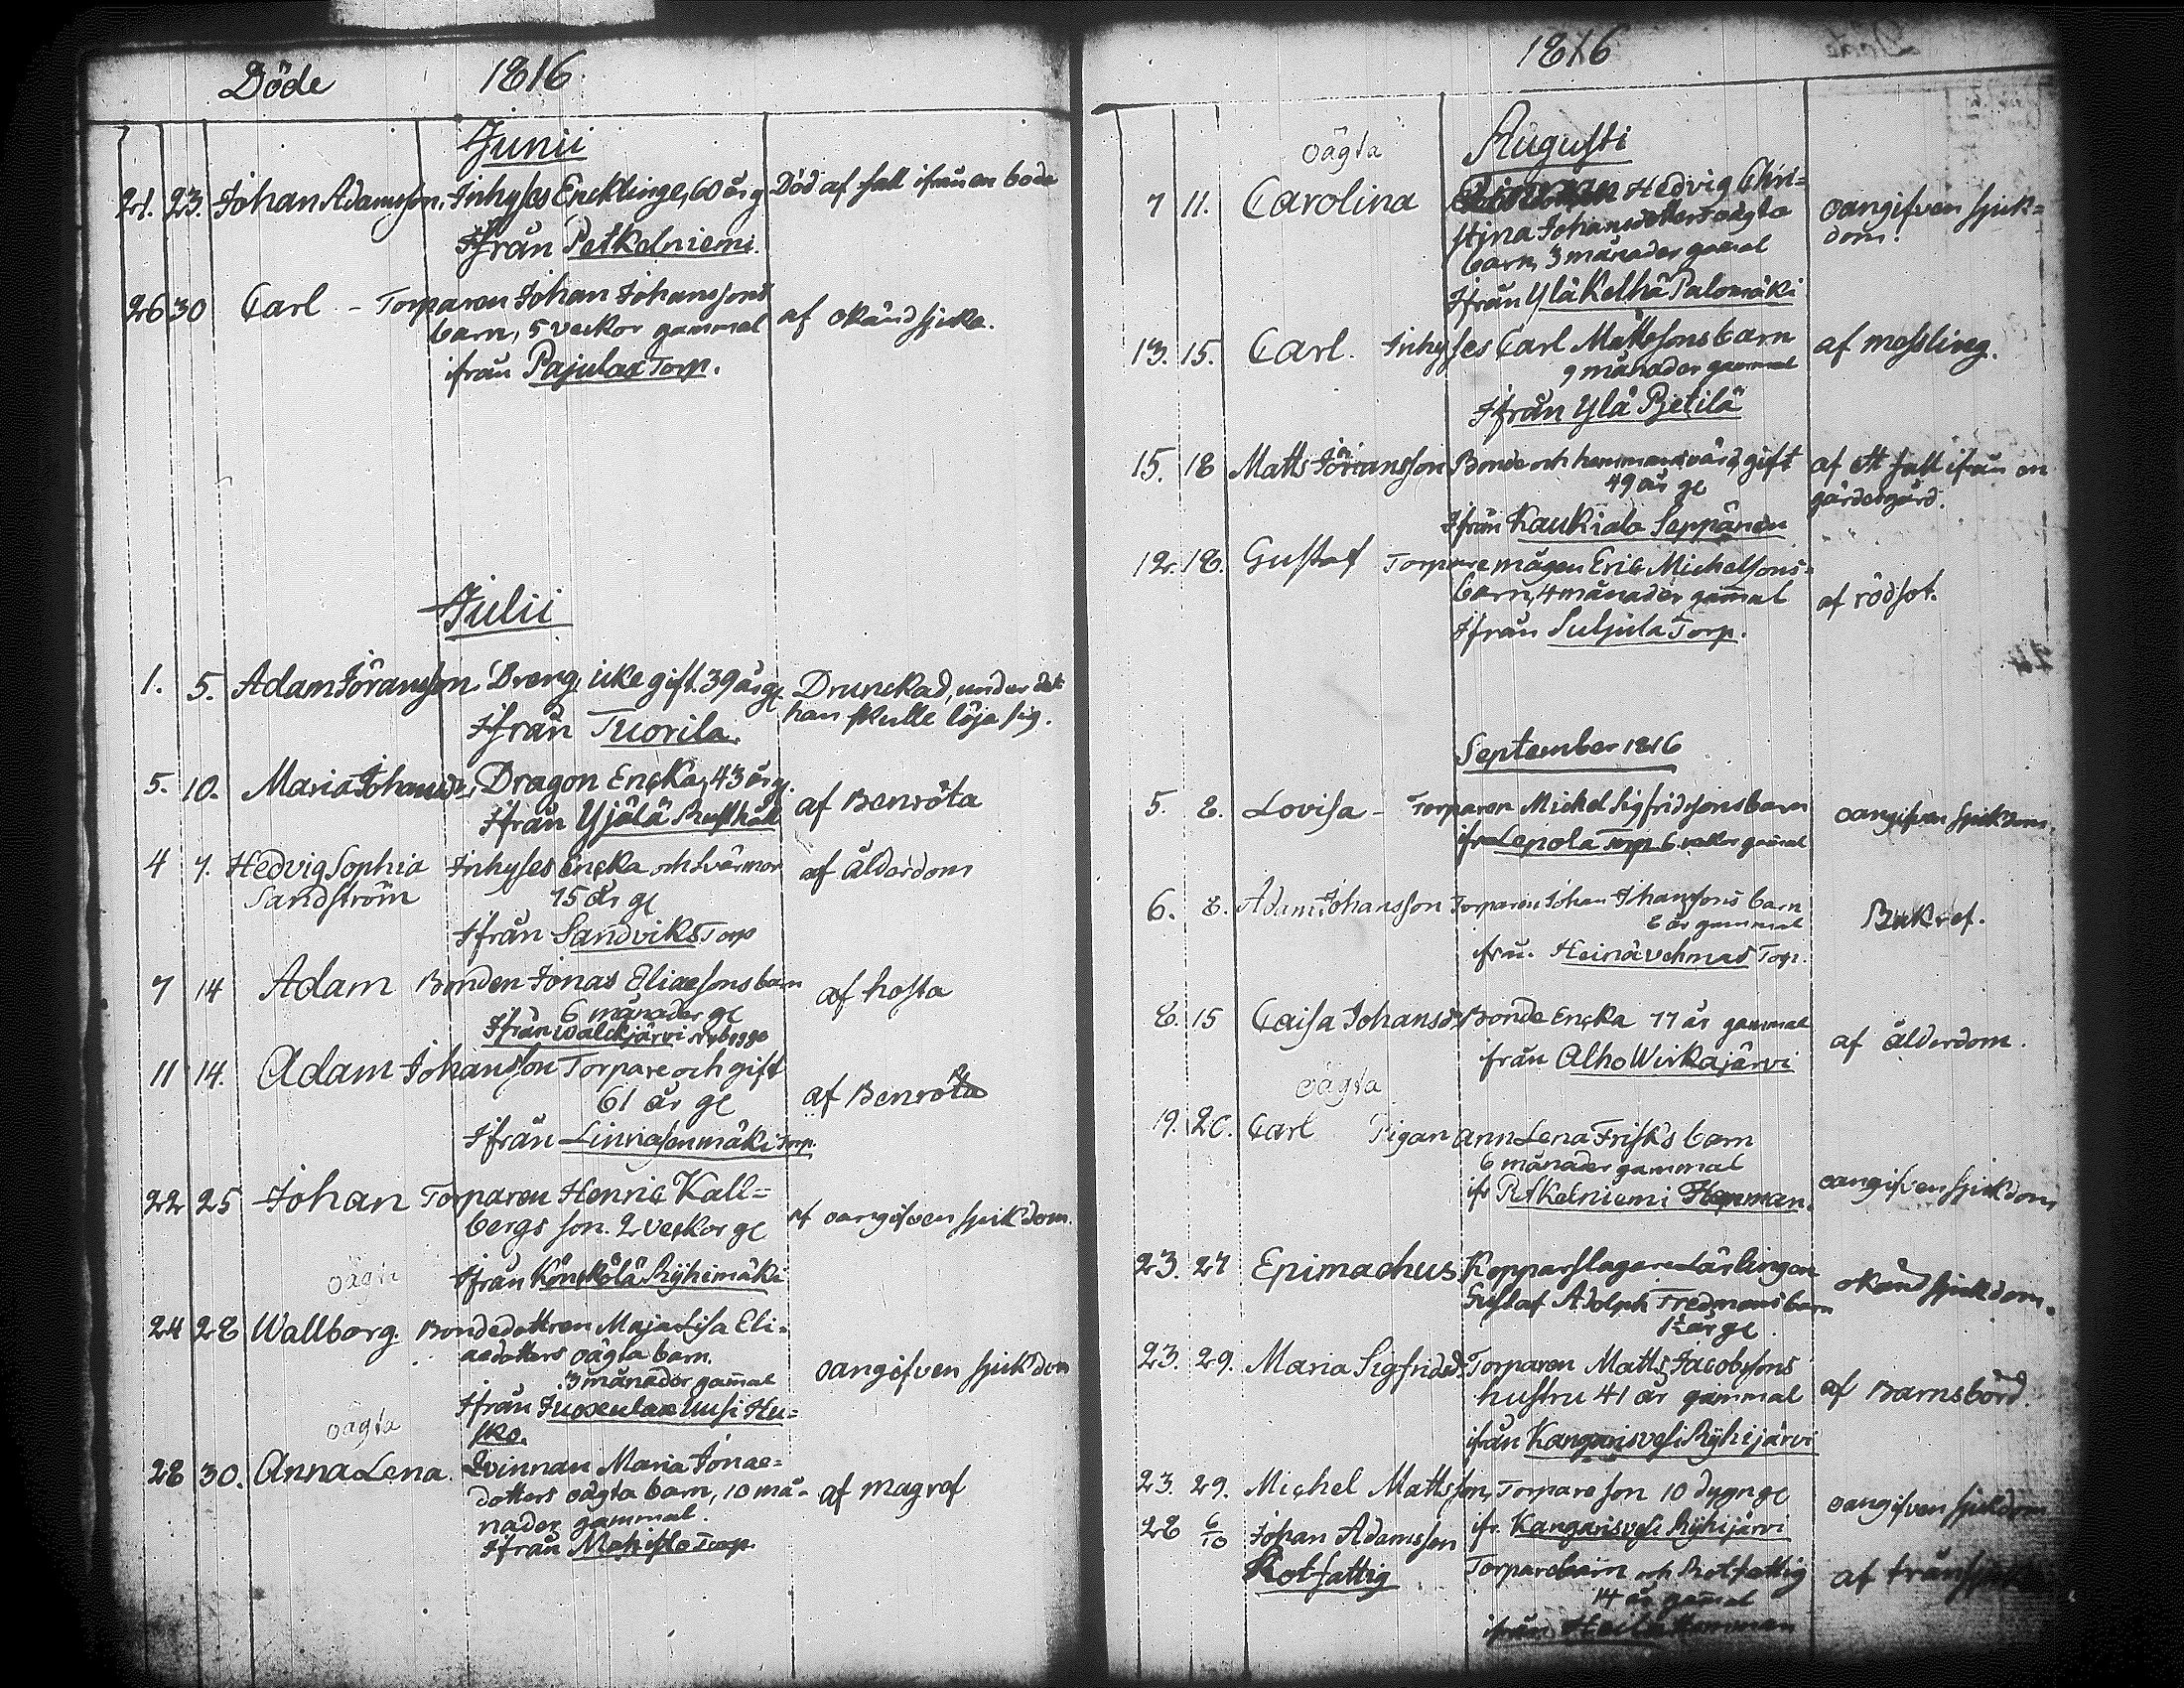 Döde 1816
Junii
21. 23. Johan Adamsson. Inhyses Encklinge, 60 år g Död af fall ifrån en bode
Ifrån Petkelniemi.
26 30 Carl - Torparen Johan Johanssons af okänd sjuka.
barn, 5 veckor gammal
ifrån Pajulax Torp.
Julii
1. 5. Adam Jöransson. Dreng icke gift. 39 år gl Drunckad, under det
Ifrån Tuorila. han skulle löja sig.
5. 10. Maria Johansd. Dragon Encka, 43 år g. af Benröta
Ifrån Yjälä Rusthåll
4 7. Hedvig Sophia Inhyses Encka och Svärmor af ålderdom
Sandström 75 år gl
Ifrån Sandviks Torp
7 14 Adam Bonden Jonas Eliaesons barn af hosta
6 månader gl
Ifrån Walckjärvi nybygge
11 14. Adam Johansson Torpare och gift af Benröta
61 år gl
Ifrån Linnasenmäki Torp.
22 25 Johan Torparen Henric Kall= af oangifven sjukdom.
bergs son. 2 veckor gl
Ifrån Könckölä Ryhimäki
oägta
24 28 Wallborg. Bondedottren Maja Lisa Eli= oangifven sjukdom
aedotters oägta barn.
3 månader gamal
Ifrån Juoxulax Uusi Hu=
sko.
oägta
28 30. Anna Lena. Qvinnan Maria Jonae= af magref
dotters oägta barn, 10 må=
nader gammal.
Ifrån Mahisto Torp.
1816
Augusti
oägta
7 11. Carolina Hedvig Chri= oangifven sjuk=
stina Johansdotters oägta dom.
barn, 3 månader gamal
Ifrån Ylä Kelhä Palomäki
13. 15. Carl. Inhyses Carl Mattssons barn af messling.
9 månader gammal
Ifrån Ylä Pjetilä
15. 18 Matts Jöransson Bonde och hemmansvärd, gift af ett fall ifrån en
49 år gl gärdesgård.
Ifrån Kaukiala Seppänen
12. 18. Gustaf Torpare mågen Eric Michelsons= af rödsot.
barn, 4 månader gamal
Ifrån Suljula Torp.
September 1816
5. 8. Lovisa - Torparen Michel Sigfridssons barn oangifven sjukdom.
ifrån Lepola Torp 6 veckor gamal
6. 8. Adam Johansson Torparen Johan Johanssons barn Bukref.
8 år gammal
ifrån. Heinävehmas Torp.
8. 15 Caisa Johansd: Bonde Encka 77 år gammal af ålderdom.
ifrån Alho Wirkajärvi
oägta
19. 20. Carl Pigan Ann Lena Frisk's barn oangifven sjukdom
6 månader gammal
ifr Petkelniemi Hemman.
23. 27 Epimachus Kopparslagare Lärlingen okänd sjukdom.
Gustaf Adolph Tredmans barn
1½ år gl.
23. 29. Maria Sigfridsd: Torparen Matts Jacobssons af Barnsbörd.
hustru 41 år gammal
ifrån Kangarisvesi Ryhijärvi
23. 29. Michel Mattsson, Torpare son 10 dygn gl oangifven sjukdom
ifr. Kangarisvesi Ryhijärvi
28 6/10 Johan Adamsson Torparebarn och Rotfattig af
Rotfattig 14 år gamal
ifrån Hemman